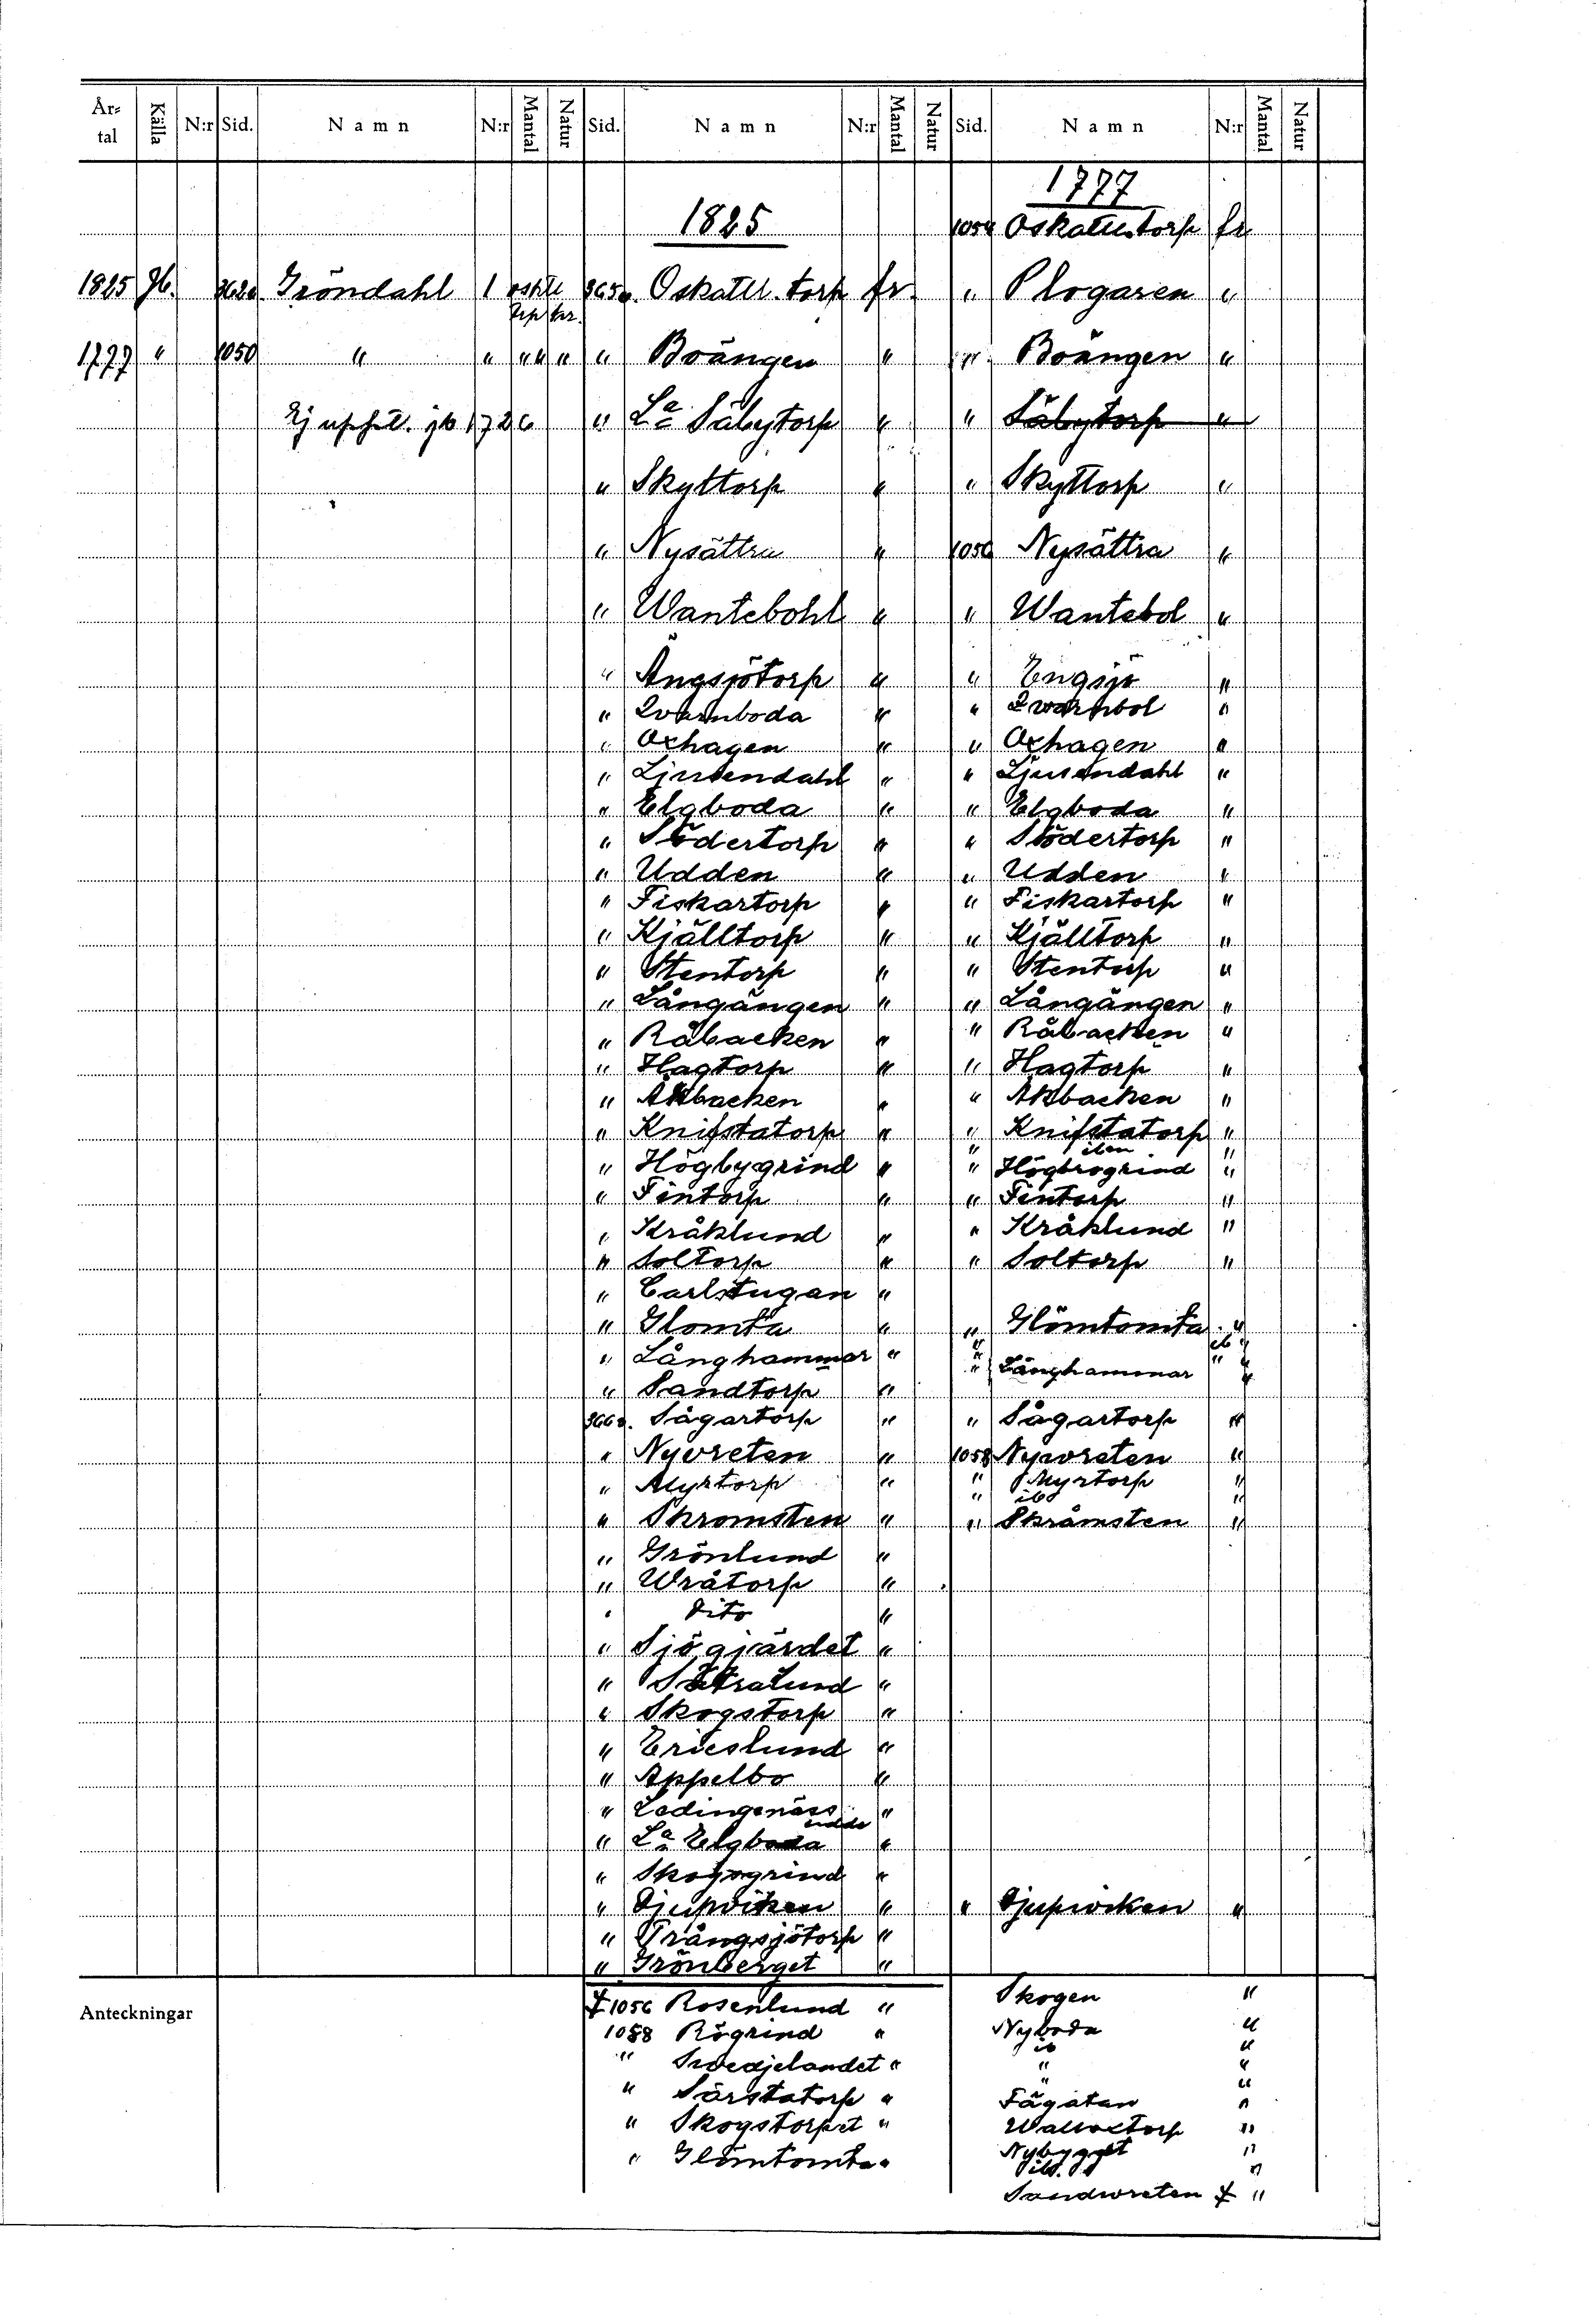 År-tal Källa N:r Sid. Namn N:r Mantal Natur Sid. Namn N:r Mantal Natur Sid. Namn N:r Mantal Natur
1777
1825 1054 Oskattl. torp fr
1825 Jb. 362a Gröndahl 1 365a. Oskattl. torp fr. " Plogaren "
1777 " 1050 " " " " " " Boängen " " Boängen "
Ej uppt. jb 1726 " La Säbytorp " " Säbytorp "
" Skyttorp " " Skyttorp "
" Nysättra " 1056 Nysättra "
" Wantebohl " " Wantebol "
" Ängsjötorp " " Engsjö "
" Qvarnboda " " Qwarnbol "
" Oxhagen " " Oxhagen "
" Ljusendahl " " Ljusendahl "
" Elgboda " " Elgboda "
" Södertorp " " Södertorp "
" Udden " " Udden "
" Fiskartorp " " Fiskartorp "
" Kjälltorp " " Kjälltorp "
" Stentorp " " Stentorp "
" Långängen " " Långängen "
" Råbacken " " Råbacken "
" Hagtorp " " Hagtorp "
" Åkbacken " " Åkbacken "
" Knifstatorp " " Knifstatorp "
" "
" Högbygrind " " Högbrogrind "
" Fintorp " " Fintorp "
" Kråklund " " Kråklund "
" Soltorp " " Soltorp "
" Carlstugan "
" Glomta " " Glömtomta "
" Långhammar " " Långhammar "
" Sandtorp "
366a. Sågartorp " " Sågartorp "
" Nyvreten " 1058 Nywreten "
" Myrtorp " " Myrtorp "
" ib "
" Skromsten " " Skråmsten "
" Grönlund "
" Wråtorp "
" Dito "
" Sjögjärdet "
" Sätralund "
" Skogstorp "
" Ericslund "
" Appelbo "
" Ladingenäss "
" La Elgboda "
" Skogsgrind "
" Djupviken " " Djupwiken "
" Trångsjötorp "
" Grönberget "
Anteckningar
1056 Rosenlund " Skogen "
1058 Rögrind " Nyboda "
ib "
" Swedjelandet " " "
" "
" Särstatorp " Fägatan "
" Skogstorpet " "
" Glömtomta " Nybygget "
"
Sandwreten "